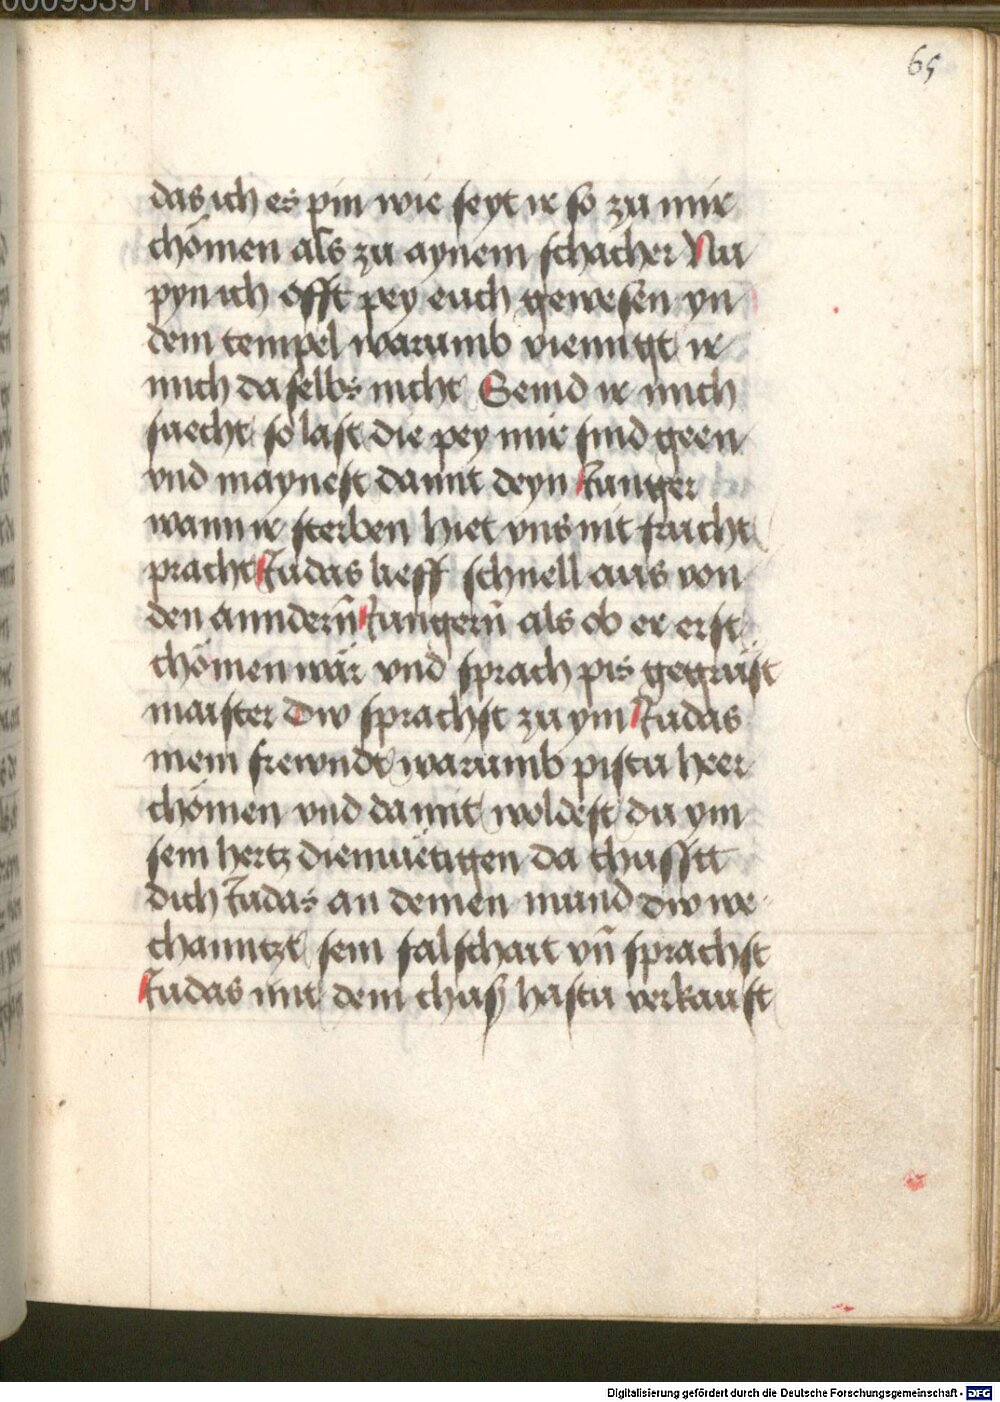 65
das ich es pin wie seyt ir so zu mir
chömen als zu aynem schacher Nu
pyn ich offt pey euch gewesen yn
dem tempel warumb viengt ir
mich daselbs nicht Seind ir mich
suecht so last die pey mir sind geen
vnd maynest damit deyn Junger
wann ir sterben hiet vns nit frucht
pracht Judas lieff schnell aus von
den anndern̄ Jungern̄ als ob er erst
chömen wär vnd sprach pis gegrüst
maister Dw sprachst zu ym Judas
mein frewndt warumb pistu heer
chömen vnd damit woldest du ym
sein hertz diemüetigen da chusstt
dich Judas an deinen mund dw we
channtzt sein falschait vn̄ sprachst
Judas mit dem chuss hastu verkauft
Digitalisierung gefördert durch die Deutsche Forschungsgemeinschaft - DFG